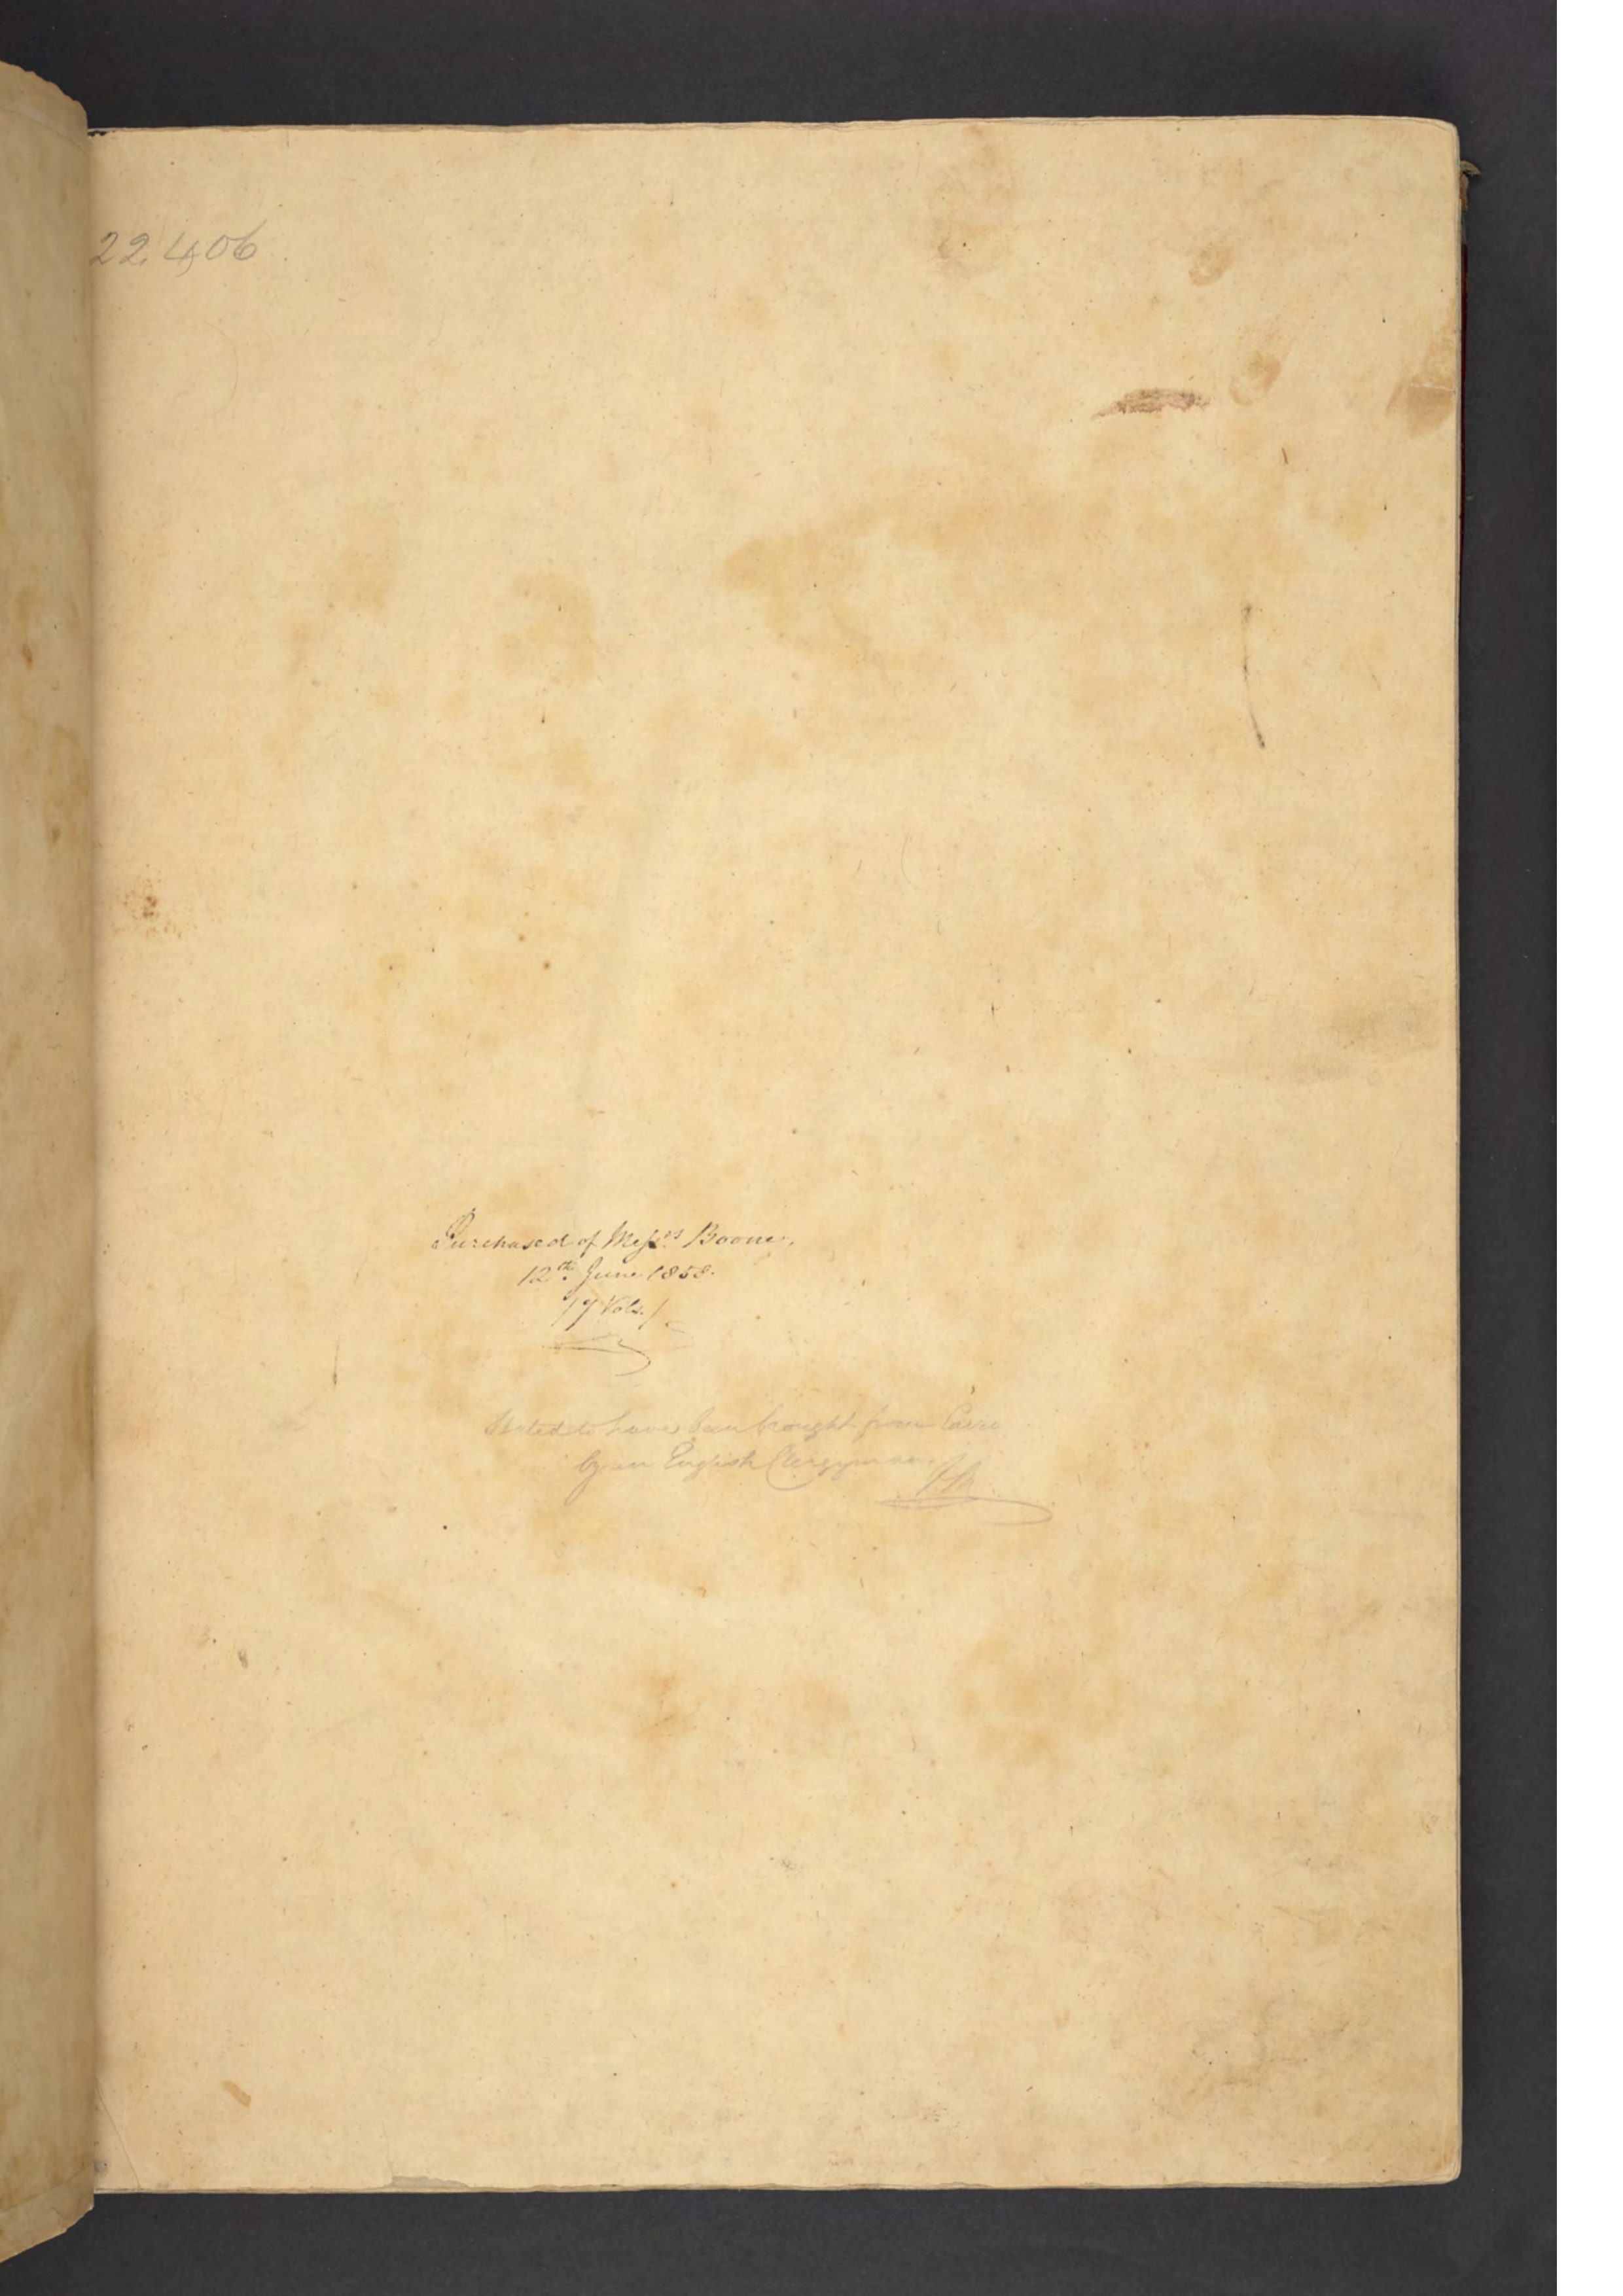 22,406
Purchased of Mess.rs Boone,
12th. June 1858.
(7 Vols.)
Stated to have been brought from Cairo
by an English Clergyman.